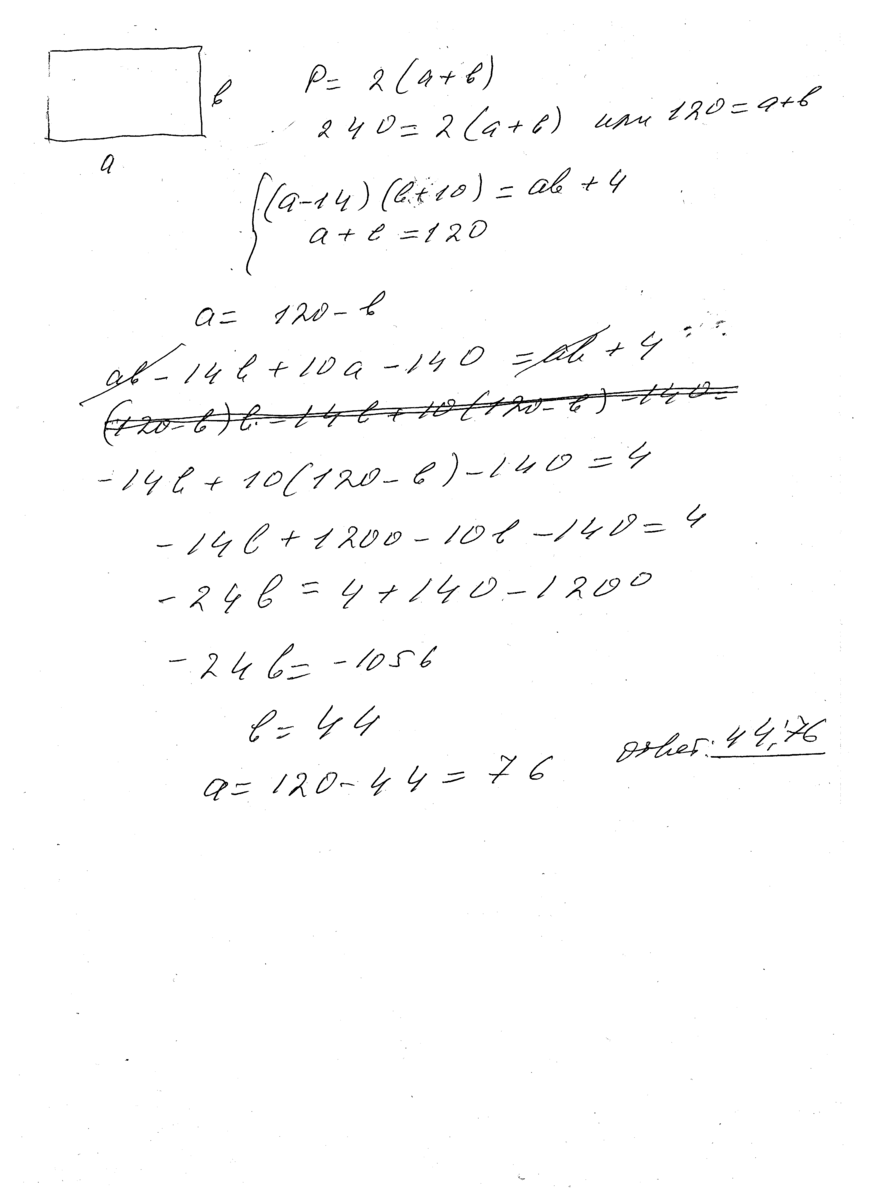 в
a
P = 2(a+в)
240 = 2(a+в) или 120 = a+в
(a-14)(в+10) = aв + 4
a + в = 120
a = 120 - в
aв - 14в + 10a - 140 = aв + 4
(120-в)в - 14в + 10(120-в) - 140 =
-14в + 10(120-в) - 140 = 4
-14в + 1200 - 10в - 140 = 4
-24в = 4 + 140 - 1200
-24в = -1056
в = 44
a = 120 - 44 = 76
ответ: 44; 76